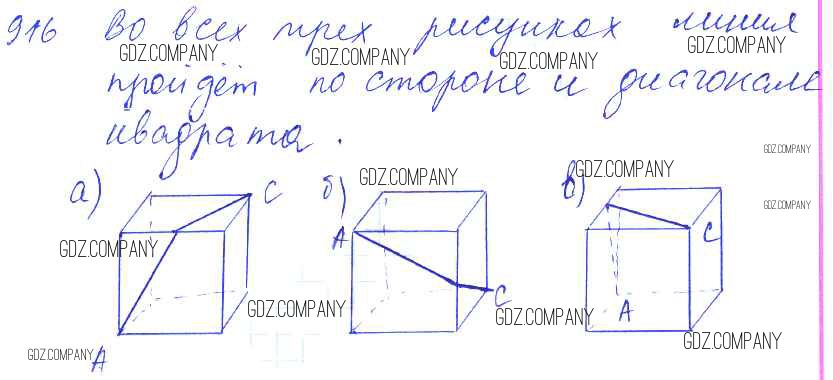 916 Во всех трех рисунках линия
GDZ.COMPANY GDZ.COMPANY GDZ.COMPANY GDZ.COMPANY
пройдёт по стороне и диагонале
квадрата.
GDZ.COMPANY
а) C б) GDZ.COMPANY в) GDZ.COMPANY
GDZ.COMPANY
GDZ.COMPANY A C
C
GDZ.COMPANY GDZ.COMPANY A
GDZ.COMPANY A GDZ.COMPANY